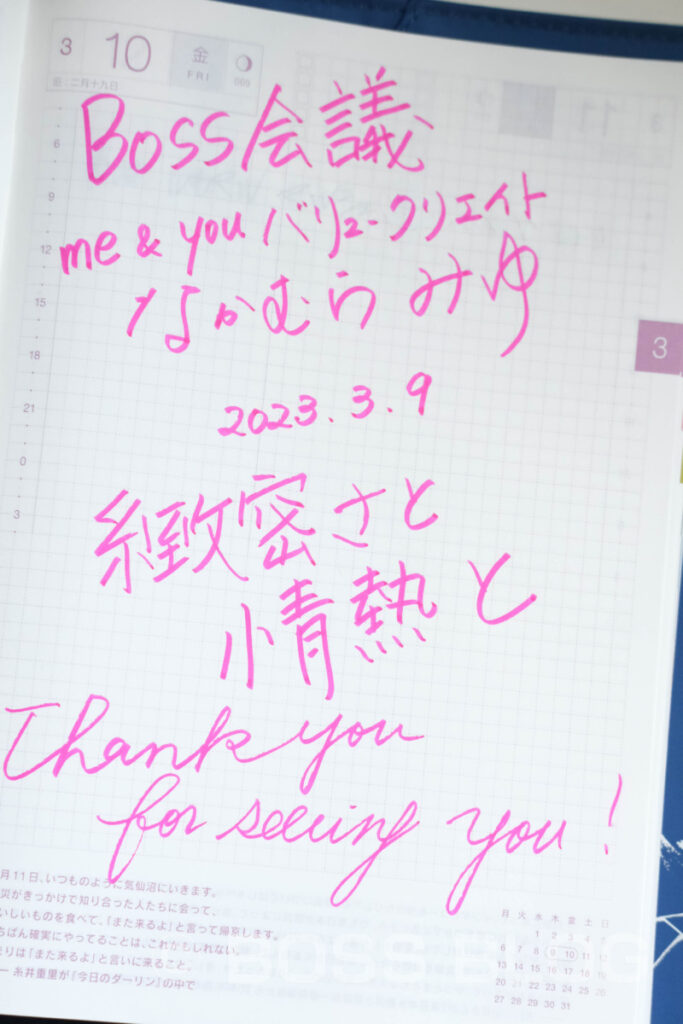 3 10 金 FRI 069
旧:二月十九日
6
9
12
15
18
21
0
3
Boss会議
me & you バリュークリエイト
なかむら みゆ
2023.3.9
緻密さと
情熱と
Thank you
for seeing you!
3
月11日、いつものように気仙沼にいきます。
災がきっかけで知り合った人たちに会って、
いしいものを食べて、「また来るよ」と言って帰京します。
ちばん確実にやってることは、これかもしれない。
まりは「また来るよ」と言いに来ること。
— 糸井重里が『今日のダーリン』の中で
月 火 水 木 金 土 日
1 2 3 4 5
6 7 8 9 10 11 12
13 14 15 16 17 18 19
20 21 22 23 24 25 26
27 28 29 30 31